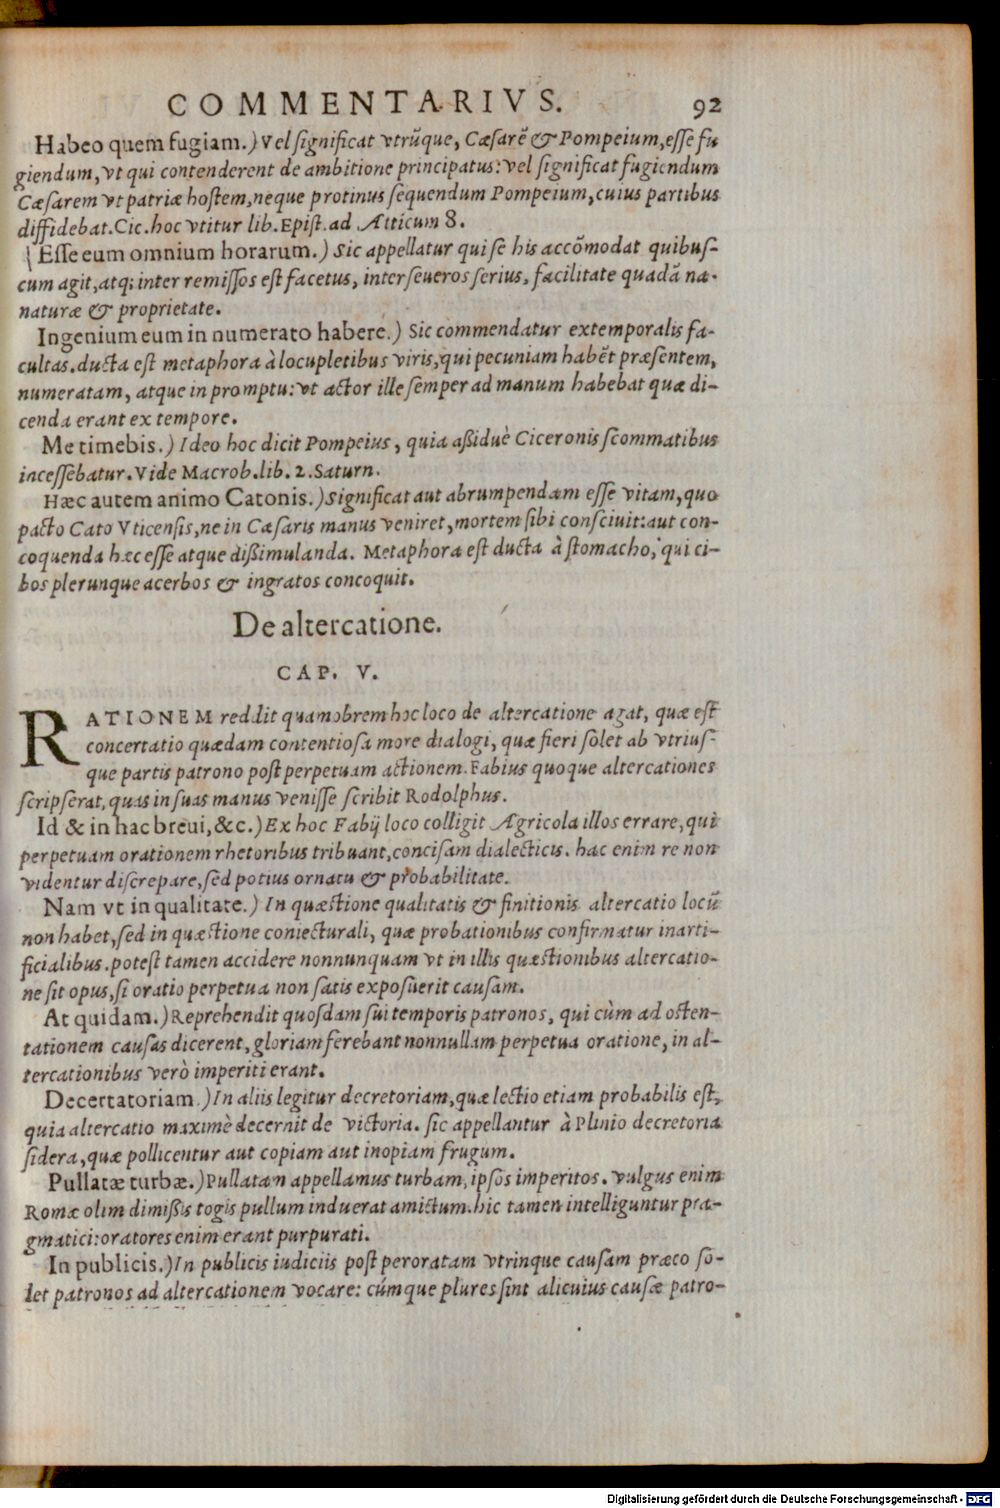 COMMENTARIVS. 92
Habeo quem fugiam.) Vel significat vtrũque, Cæsarẽ & Pompeium, esse fu
giendum, vt qui contenderent de ambitione principatus: vel significat fugiendum
Cæsarem vt patriæ hostem, neque protinus sequendum Pompeium, cuius partibus
diffidebat. Cic. hoc vtitur lib. Epist. ad Atticum 8.
Esse eum omnium horarum.) Sic appellatur qui se his accõmodat quibus-
cum agit, atq; inter remissos est facetus, inter seueros serius, facilitate quadã na-
naturæ & proprietate.
Ingenium eum in numerato habere.) Sic commendatur extemporalis fa-
cultas. ducta est metaphora à locupletibus viris, qui pecuniam habẽt præsentem,
numeratam, atque in promptu: vt actor ille semper ad manum habebat quæ di-
cenda erant ex tempore.
Me timebis.) Ideo hoc dicit Pompeius, quia aßiduè Ciceronis scommatibus
incessebatur. Vide Macrob. lib. 2. Saturn.
Hæc autem animo Catonis.) Significat aut abrumpendam esse vitam, quo
pacto Cato Vticensis, ne in Cæsaris manus veniret, mortem sibi consciuit: aut con-
coquenda hæc esse atque dißimulanda. Metaphora est ducta à stomacho, qui ci-
bos plerunque acerbos & ingratos concoquit.
De altercatione.
CAP. V.
RATIONEM reddit quamobrem hoc loco de altercatione agat, quæ est
concertatio quædam contentiosa more dialogi, quæ fieri solet ab vtrius-
que partis patrono post perpetuam actionem. Fabius quoque altercationes
scripserat, quas in suas manus venisse scribit Rodolphus.
Id & in hac breui, &c.) Ex hoc Fabij loco colligit Agricola illos errare, qui
perpetuam orationem rhetoribus tribuant, concisam dialecticis. hac enim re non
videntur discrepare, sed potius ornatu & probabilitate.
Nam vt in qualitate.) In quæstione qualitatis & finitionis altercatio locũ
non habet, sed in quæstione coniecturali, quæ probationibus confirmatur inarti-
ficialibus. potest tamen accidere nonnunquam vt in illis quæstionibus altercatio-
ne sit opus, si oratio perpetua non satis exposuerit causam.
At quidam.) Reprehendit quosdam sui temporis patronos, qui cùm ad osten-
tationem causas dicerent, gloriam ferebant nonnullam perpetua oratione, in al-
tercationibus verò imperiti erant.
Decertatoriam.) In aliis legitur decretoriam, quæ lectio etiam probabilis est,
quia altercatio maximè decernit de victoria. sic appellantur à Plinio decretoria
sidera, quæ pollicentur aut copiam aut inopiam frugum.
Pullatæ turbæ.) Pullatam appellamus turbam, ipsos imperitos. vulgus enim
Romæ olim dimißis togis pullum induerat amictum. hic tamen intelliguntur pra-
gmatici: oratores enim erant purpurati.
In publicis.) In publicis iudiciis post peroratam vtrinque causam præco so-
let patronos ad altercationem vocare: cúmque plures sint alicuius causæ patro-
Digitalisierung gefördert durch die Deutsche Forschungsgemeinschaft - DFG